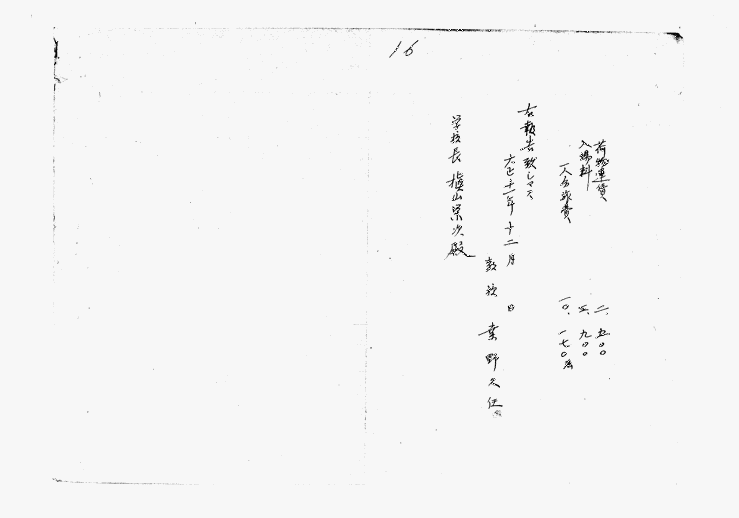 16
荷物運賃 二、五〇〇
入場料 三、九〇〇
一人分旅費 一〇、一七〇
右報告致シマス
大正十二年十二月 日
教諭 桑野久任
学校長 槇山栄次殿